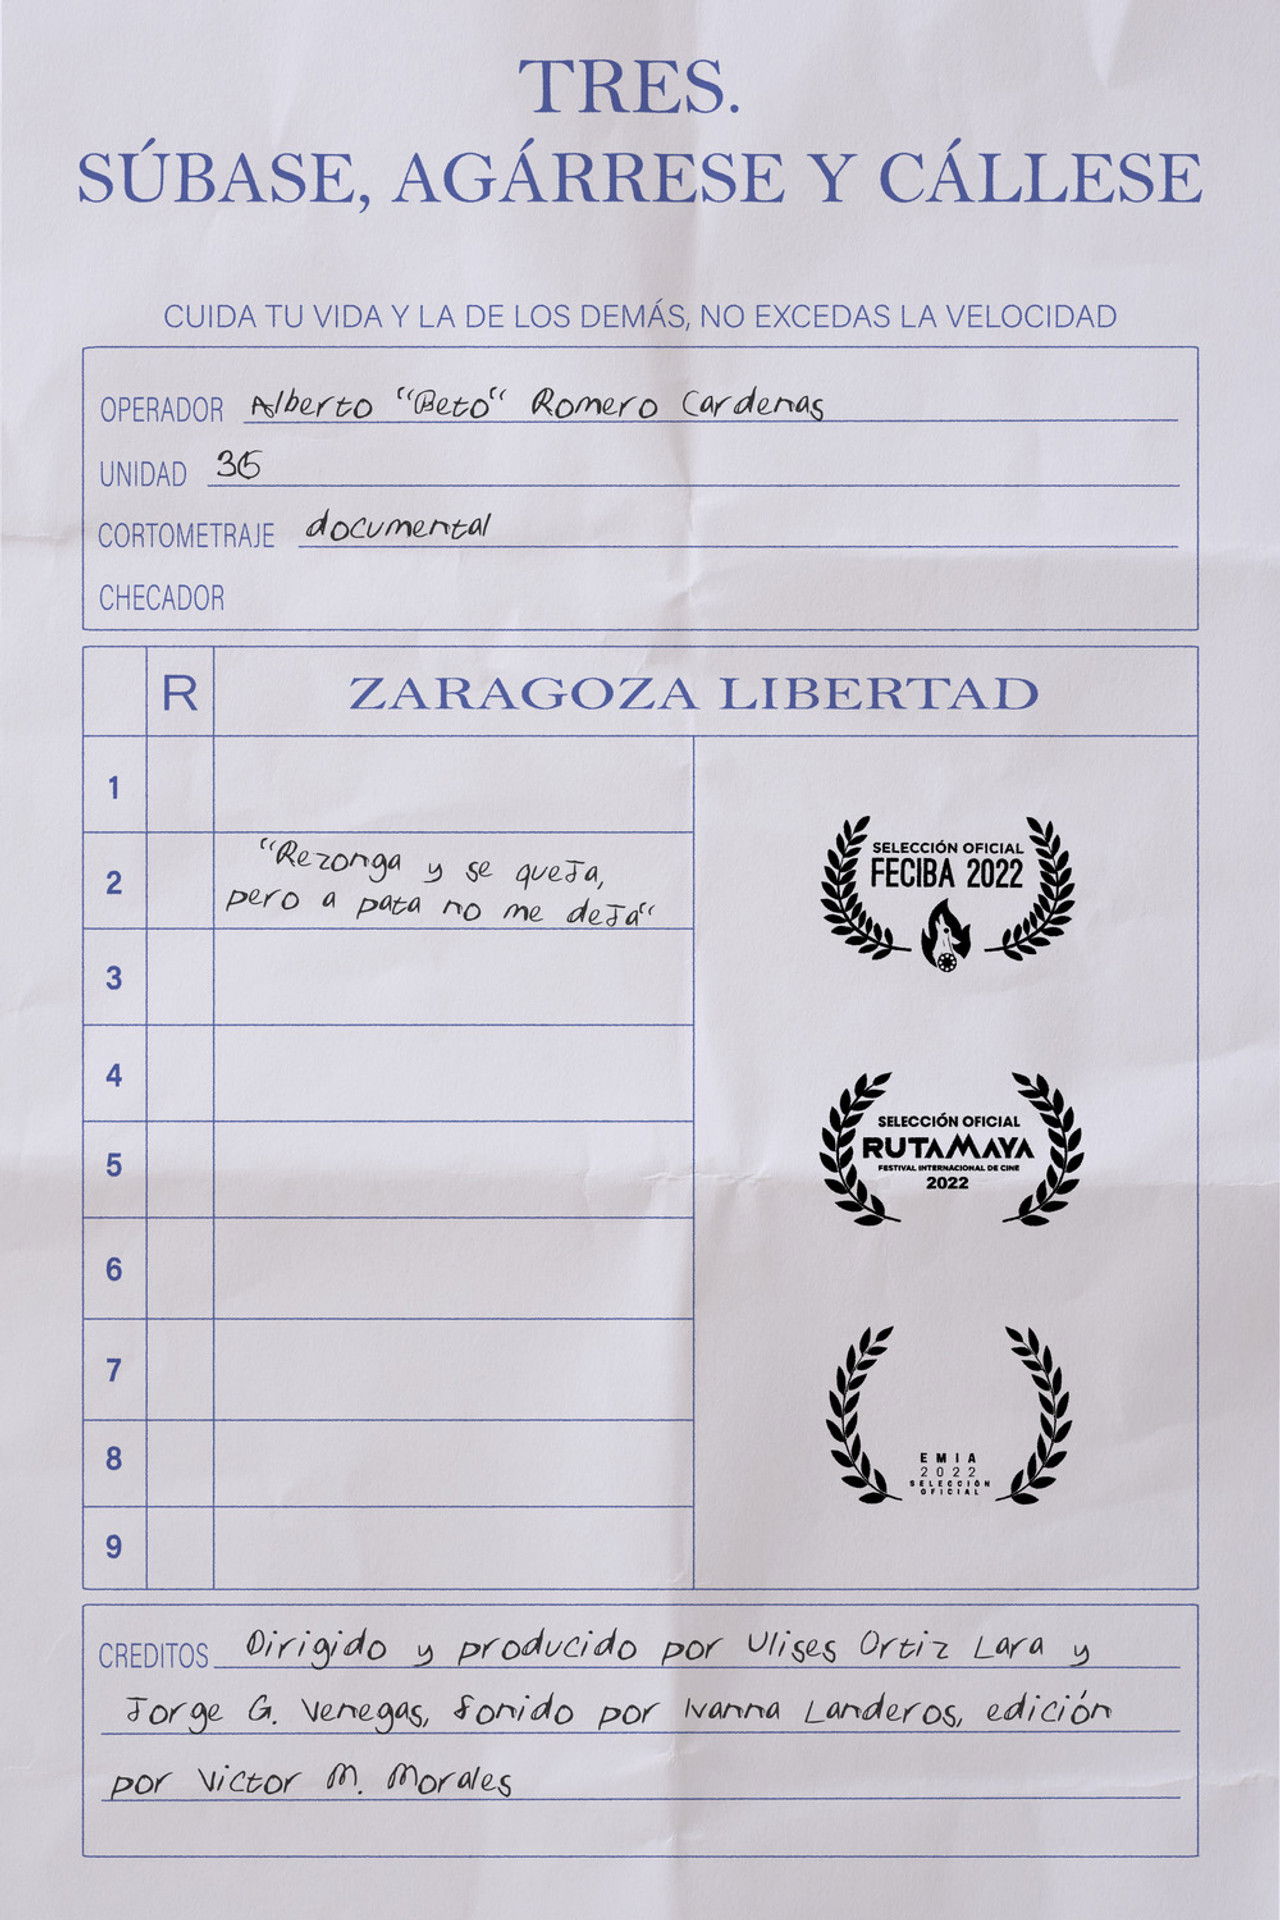 TRES.
SÚBASE, AGÁRRESE Y CÁLLESE
CUIDA TU VIDA Y LA DE LOS DEMÁS, NO EXCEDAS LA VELOCIDAD
OPERADOR Alberto "Beto" Romero Cardenas
UNIDAD 36
CORTOMETRAJE documental
CHECADOR
R ZARAGOZA LIBERTAD
1
2 "Rezonga y se queja,
pero a pata no me deja"
3
4
5
6
7
8
9
SELECCIÓN OFICIAL
FECIBA 2022
SELECCIÓN OFICIAL
RUTAMAYA
FESTIVAL INTERNACIONAL DE CINE
2022
EMIA
2022
SELECCIÓN
OFICIAL
CREDITOS Dirigido y producido por Ulises Ortiz Lara y
Jorge G. Venegas, Sonido por Ivanna Landeros, edición
por Victor M. Morales